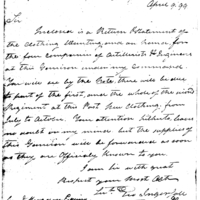 April 9. 99
Sir
Enclosed is a Return & Statement of
the Clothing Wanting, and on hand for
the four Companies of Artillerists & Engineers
at this Garrison under my Command.
You will see by the Date there will be due
to part of the first, and the whole of the second
Regiment at this Post New Clothing, from
July to October. Your attention hitherto, leaves
no doubt on my mind but the supplies of
this Garrison will be forwarded as soon
as they are Officially known to you
I am Sir with great
Respect your Most Obt